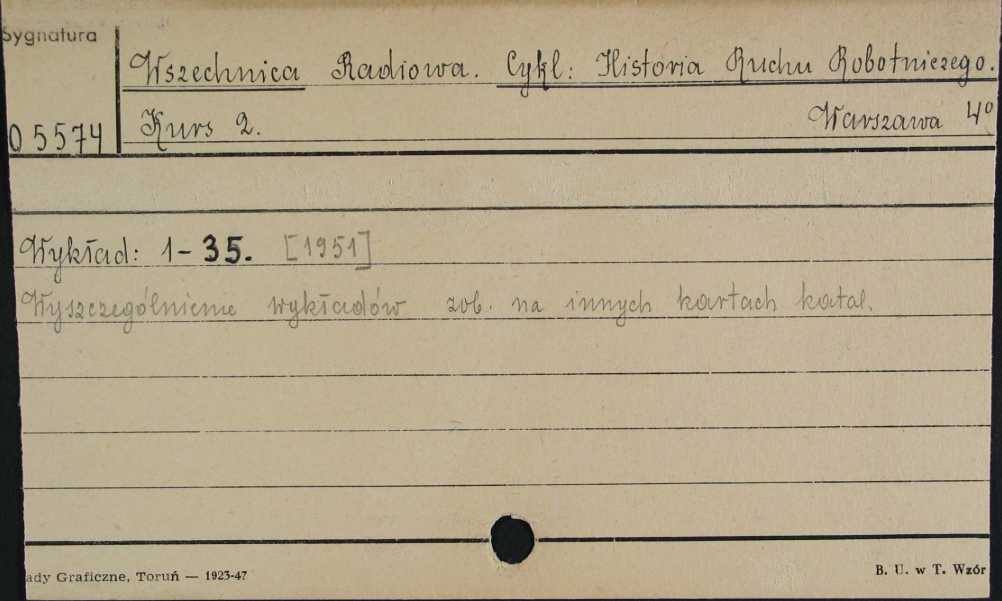 Sygnatura
Wszechnica Radiowa. Cykl: Historia Ruchu Robotniczego.
05574 Kurs 2. Warszawa 4°
Wykład: 1-35. [1951]
Wyszczególnienie wykładów zob. na innych kartach katal.
ady Graficzne, Toruń — 1923-47 B. U. w T. Wzór